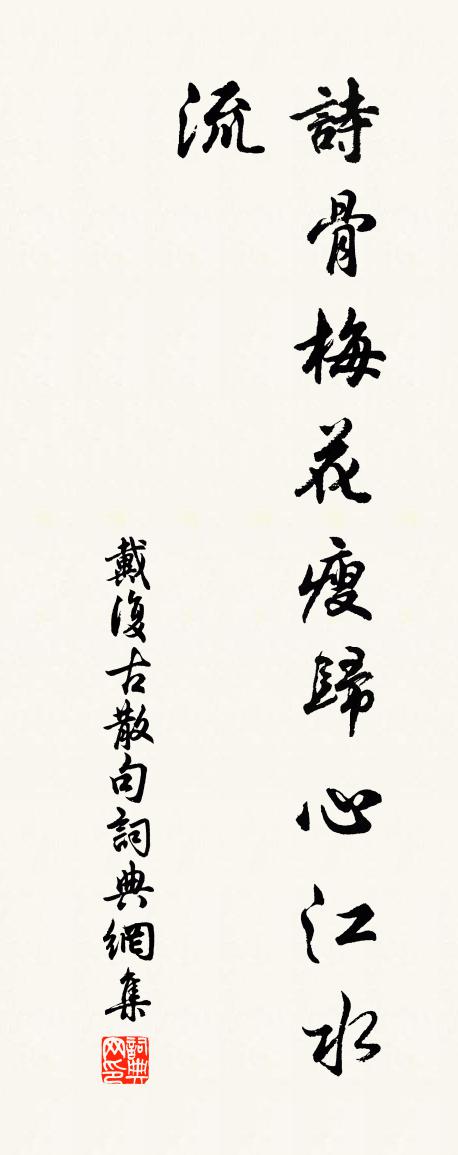 詩骨梅花瘦歸心江水
流
戴復古散句詞典網集
詞典网印